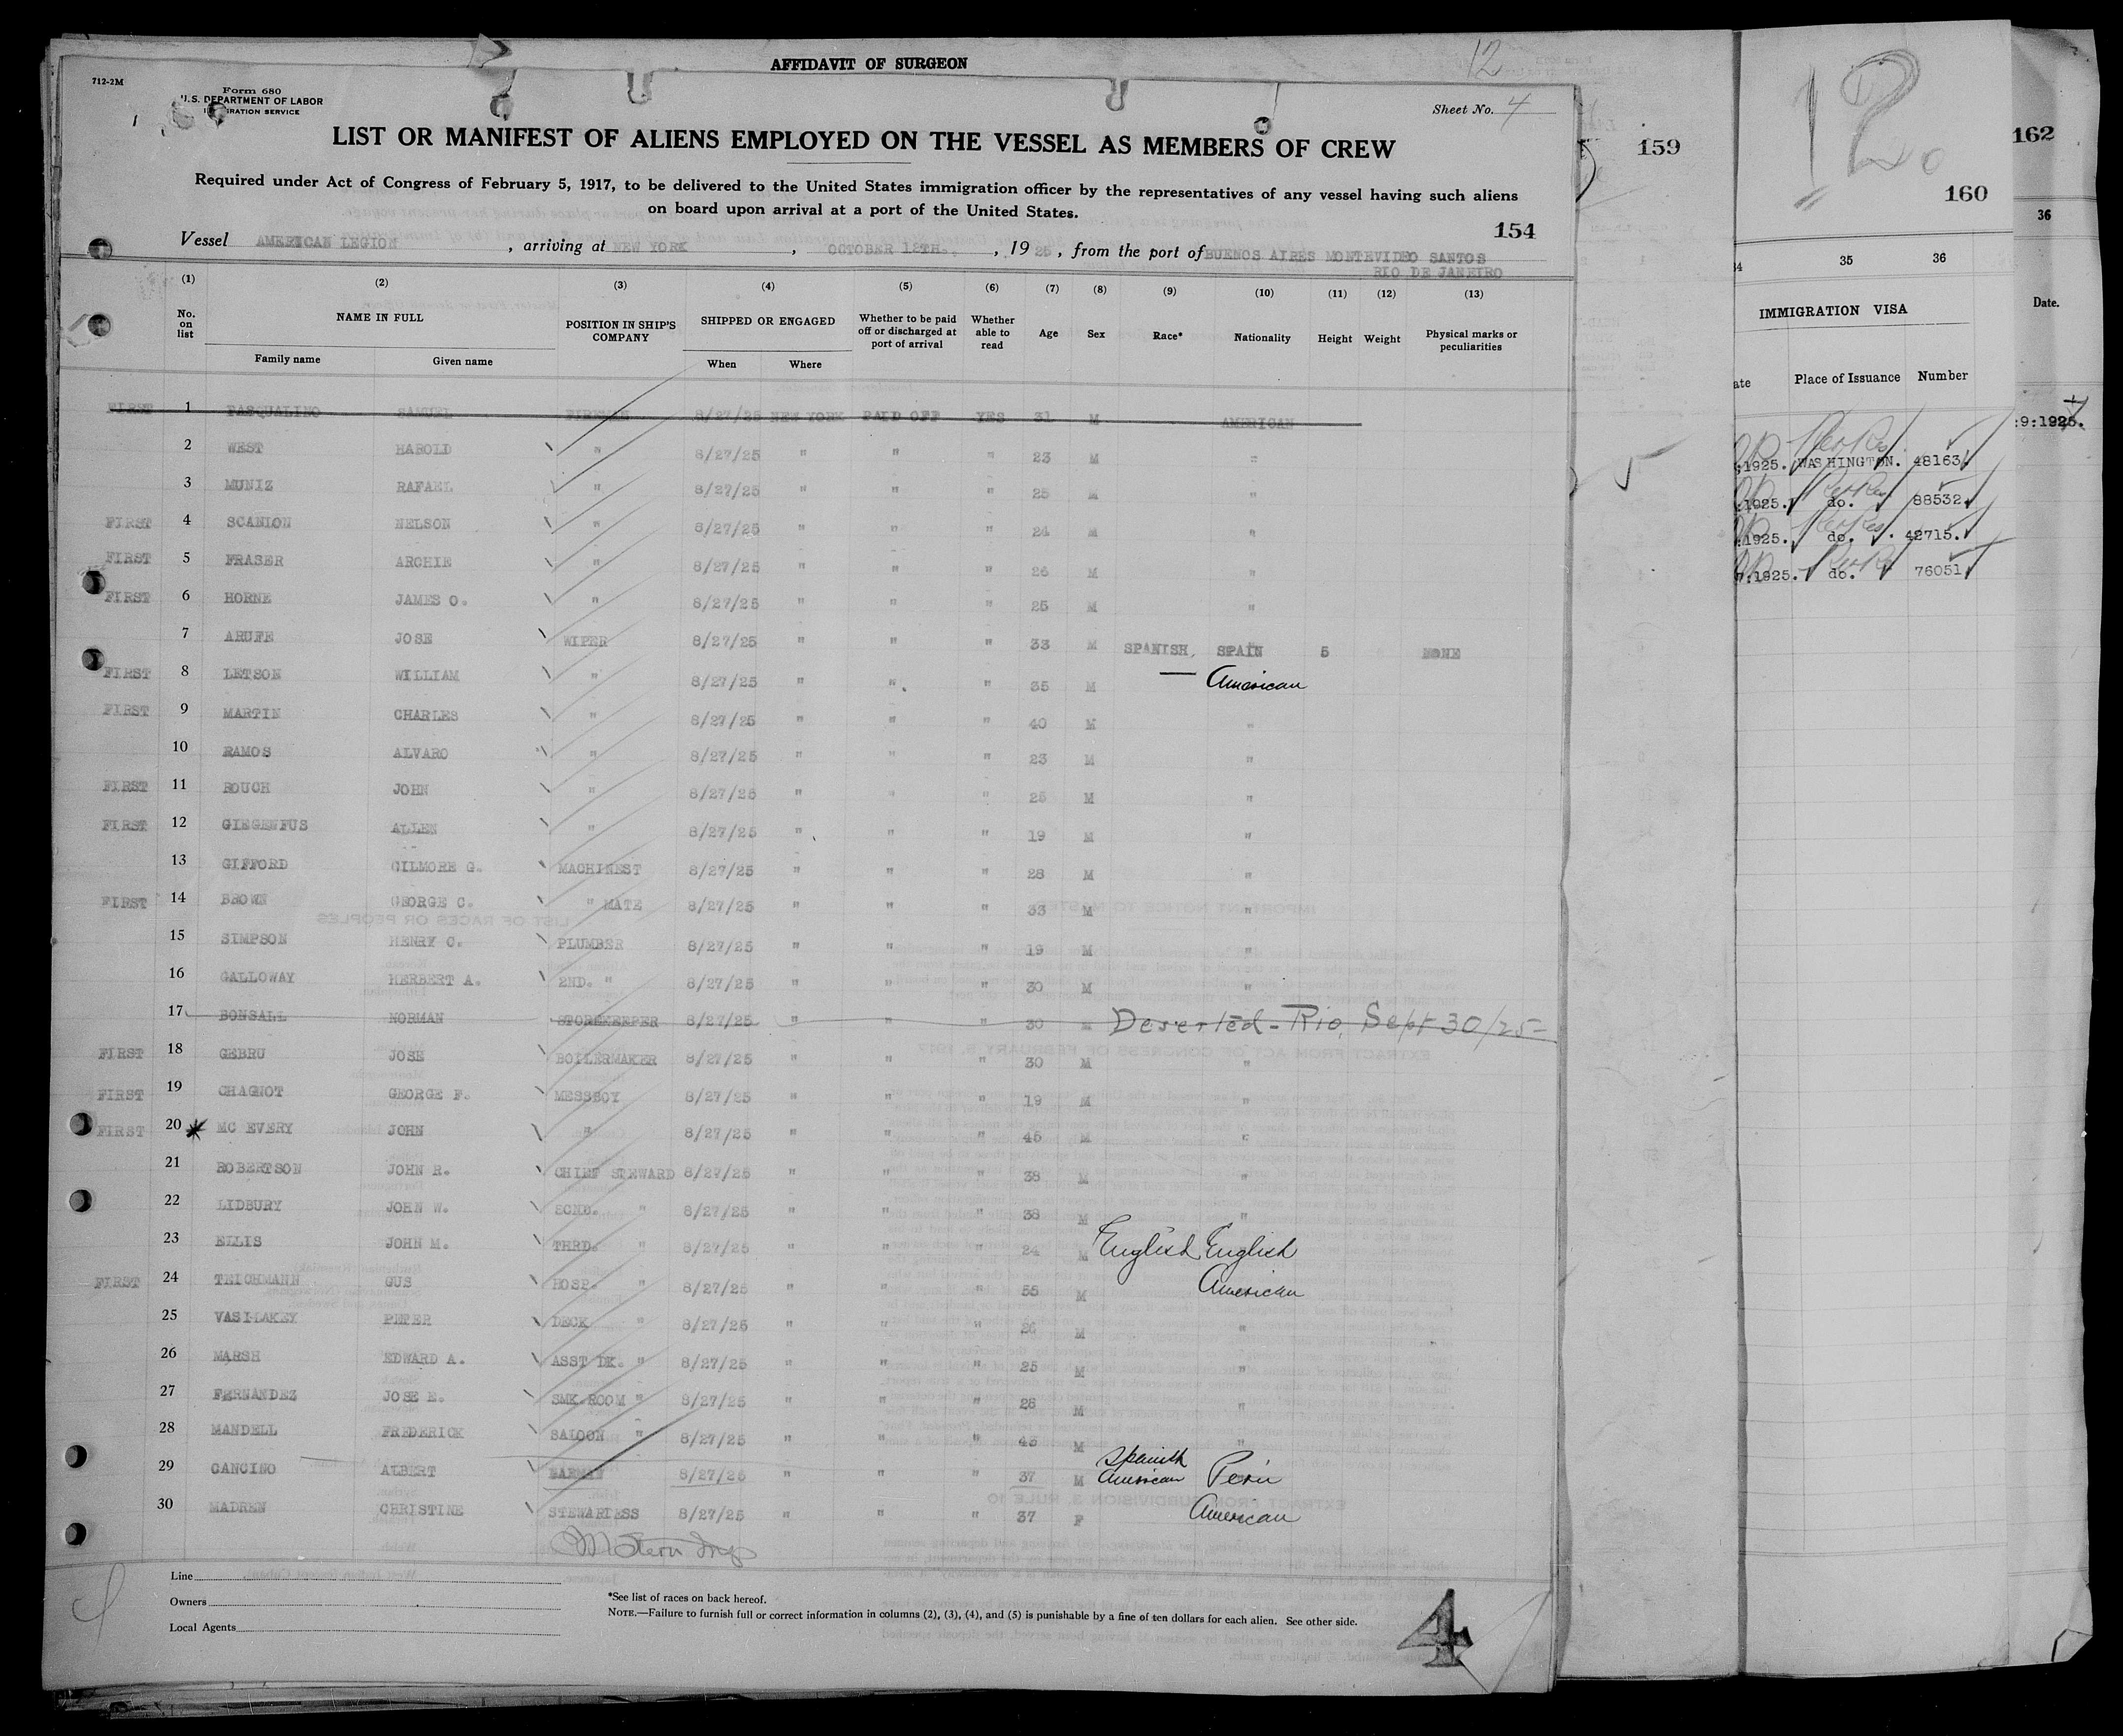 AFFIDAVIT OF SURGEON
12
712-2M
Form 680
U.S. DEPARTMENT OF LABOR
IMMIGRATION SERVICE
Sheet No. 4
LIST OR MANIFEST OF ALIENS EMPLOYED ON THE VESSEL AS MEMBERS OF CREW
Required under Act of Congress of February 5, 1917, to be delivered to the United States immigration officer by the representatives of any vessel having such aliens
on board upon arrival at a port of the United States.
154
Vessel AMERICAN LEGION, arriving at NEW YORK, OCTOBER 12TH., 1925, from the port of BUENOS AIRES MONTEVIDEO SANTOS
RIO DE JANEIRO
(1) (2) (3) (4) (5) (6) (7) (8) (9) (10) (11) (12) (13)
No. on list NAME IN FULL POSITION IN SHIP'S COMPANY SHIPPED OR ENGAGED Whether to be paid off or discharged at port of arrival Whether able to read Age Sex Race* Nationality Height Weight Physical marks or peculiarities
Family name Given name When Where
FIRST 1 PASQUALINO SAMUEL FIREMAN 8/27/25 NEW YORK PAID OFF YES 31 M AMERICAN
2 WEST HAROLD " 8/27/25 " " " 23 M "
3 MUNIZ RAFAEL " 8/27/25 " " " 25 M "
FIRST 4 SCANLON NELSON " 8/27/25 " " " 24 M "
FIRST 5 FRASER ARCHIE " 8/27/25 " " " 26 M "
FIRST 6 HORNE JAMES O. " 8/27/25 " " " 25 M "
7 ARUFE JOSE WIPER 8/27/25 " " " 33 M SPANISH, SPAIN 5 NONE
FIRST 8 LETSON WILLIAM " 8/27/25 " " " 35 M — American
FIRST 9 MARTIN CHARLES " 8/27/25 " " " 40 M "
10 RAMOS ALVARO " 8/27/25 " " " 23 M "
FIRST 11 ROUCH JOHN " 8/27/25 " " " 25 M "
FIRST 12 GIEGENFUS ALLEN " 8/27/25 " " " 19 M "
13 GIFFORD GILMORE G. MACHINEST 8/27/25 " " " 28 M "
FIRST 14 BROWN GEORGE C. " MATE 8/27/25 " " " 33 M "
15 SIMPSON HENRY C. PLUMBER 8/27/25 " " " 19 M "
16 GALLOWAY HERBERT A. 2ND. " 8/27/25 " " " 30 M "
17 BONSALL NORMAN STOREKEEPER 8/27/25 " " " 30 M Deserted - Rio, Sept 30/25
FIRST 18 GEBRU JOSE BOILERMAKER 8/27/25 " " " 30 M "
FIRST 19 CHAGNOT GEORGE F. MESSBOY 8/27/25 " " " 19 M "
FIRST 20 MC EVERY JOHN " 8/27/25 " " " 45 M "
21 ROBERTSON JOHN R. CHIEF STEWARD 8/27/25 " " " 38 M "
22 LIDBURY JOHN W. SCND. " 8/27/25 " " " 38 M "
23 ELLIS JOHN M. THRD. " 8/27/25 " " " 24 M English English
FIRST 24 TEICHMANN GUS HOSP. " 8/27/25 " " " 55 M American
25 VASILAKEY PETER DECK " 8/27/25 " " " 26 M "
26 MARSH EDWARD A. ASST DK. " 8/27/25 " " " 25 M "
27 FERNANDEZ JOSE E. SMK.ROOM " 8/27/25 " " " 26 M "
28 MANDELL FREDERICK SALOON " 8/27/25 " " " 43 M "
29 CANCINO ALBERT BARMAN 8/27/25 " " " 37 M Spanish American Peru
30 MADREN CHRISTINE STEWARDESS 8/27/25 " " " 37 F American
Line
Owners
Local Agents
*See list of races on back hereof.
NOTE.—Failure to furnish full or correct information in columns (2), (3), (4), and (5) is punishable by a fine of ten dollars for each alien. See other side.
4
159
12.
160
35 36
IMMIGRATION VISA
Place of Issuance Number
:1925. WASHINGTON. 48163.
:1925. do. 88532.
:1925. do. 42715.
7:1925. do. 76051
162
36
Date.
:9:1925.